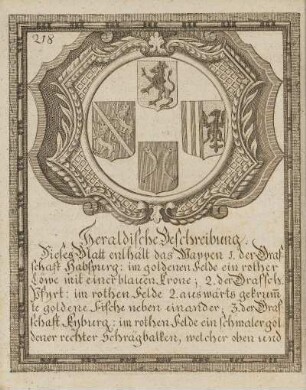 218
Heraldische Beschreibung.
Dieses Blatt enthält das Wappen 1. der Graf
schaft Habspurg: im goldenen Felde ein rother
Löwe mit einer blauen Krone; 2. der Grafsch.
Pfyrt: im rothen Felde 2. auswärts gekrüm̄
te goldene Fische neben einander; 3. der Graf
schaft Kyburg: im rothen Felde ein schmaler gol
dener rechter Schrägbalken, welcher oben und